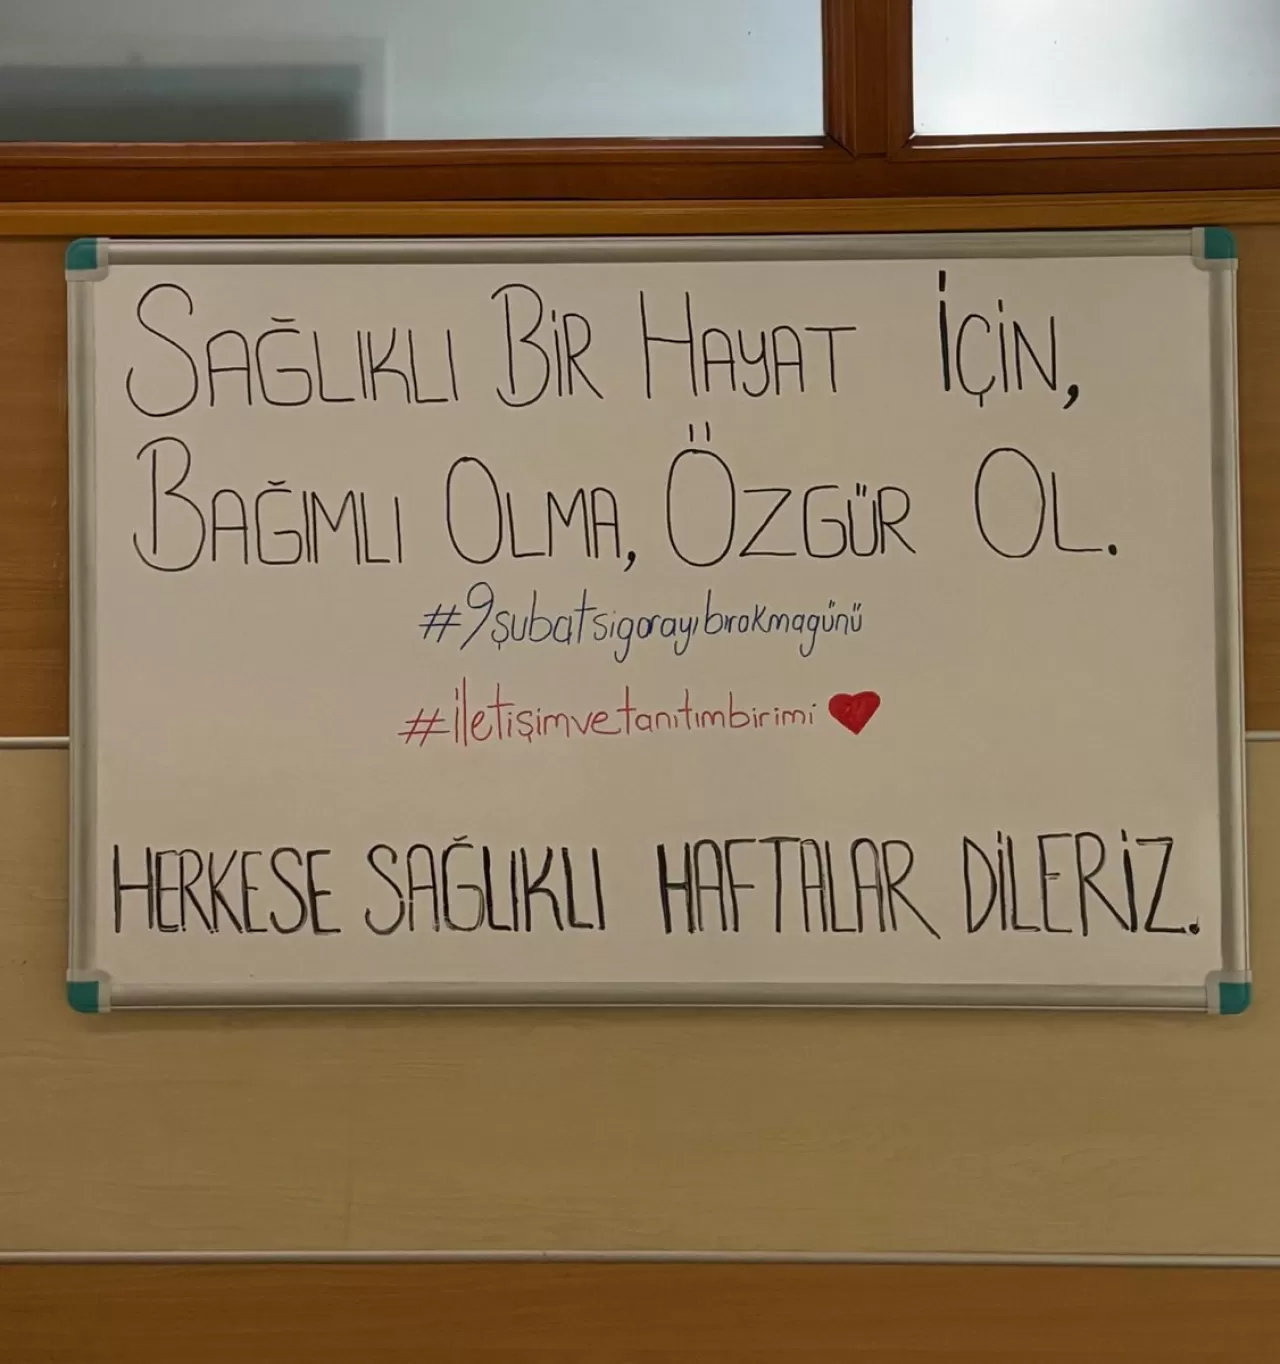 SAĞLIKLI BİR HAYAT İÇİN,
BAĞIMLI OLMA, ÖZGÜR OL.
#9şubatsigarayıbırakmagünü
#iletişimvetanıtımbirimi
HERKESE SAĞLIKLI HAFTALAR DİLERİZ.